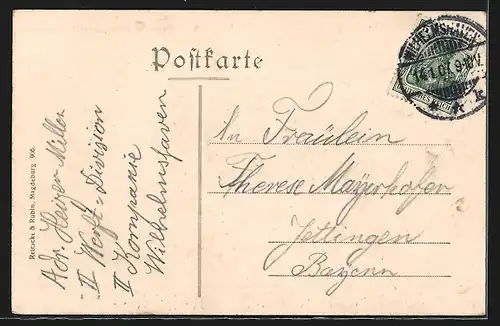 Postkarte
WILHELMSHAVEN
14.1.07.9-10V.
* * k
DEUTSCHES REICH
An Fräulein
Therese Mayerhofer
Jettingen
Bayern
Adr. Heiner Miller
II Werft-Division
II Kompanie
Wilhelmshaven
Reinecke & Rubin, Magdeburg 906.